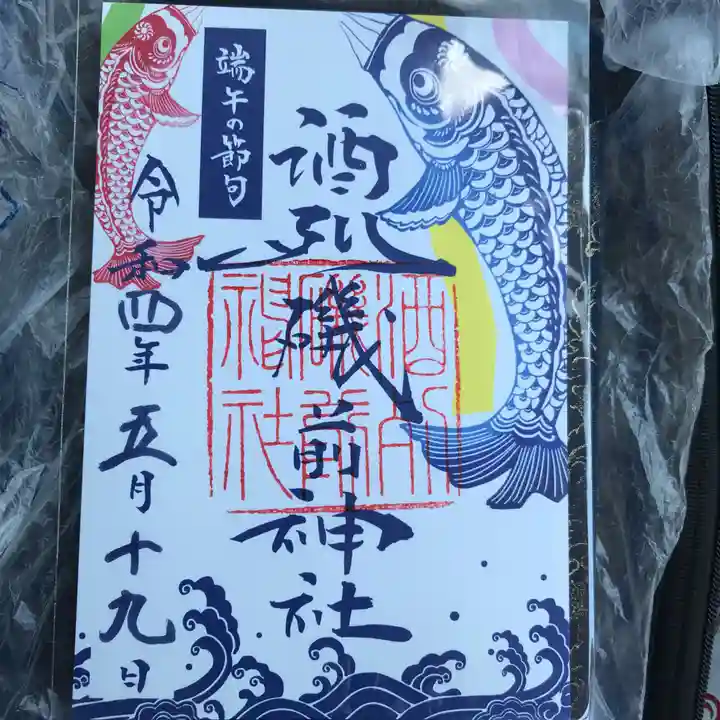 端午の節句
酒列磯前神社
令和四年五月十九日
酒列
磯前
神社